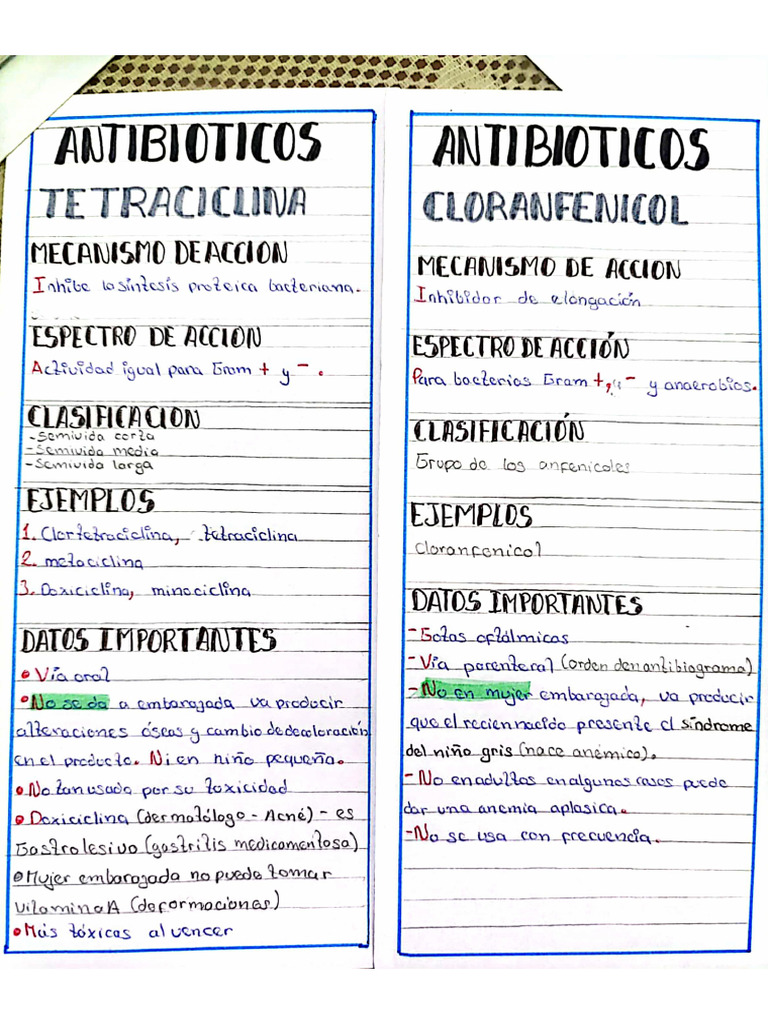 ANTIBIOTICOS
TETRACICLINA
MECANISMO DE ACCION
Inhibe la síntesis proteica bacteriana.
ESPECTRO DE ACCION
Actividad igual para Gram + y - .
CLASIFICACION
-Semivida corta
-Semivida media
-Semivida larga
EJEMPLOS
1. Clortetraciclina, tetraciclina
2. metaciclina
3. Doxiciclina, minociclina
DATOS IMPORTANTES
• Vía oral
• No se da a embarajada va producir
alteraciones óseas y cambio de decoloración
en el producto. Ni en niño pequeño.
• No tan usada por su toxicidad
• Doxiciclina (dermatólogo - Acné) - es
Gastrolesivo (gastritis medicamentosa)
• Mujer embarajada no puede tomar
vitamina A (deformaciones)
• Más tóxicas al vencer
ANTIBIOTICOS
CLORANFENICOL
MECANISMO DE ACCION
Inhibidor de elongación
ESPECTRO DE ACCIÓN
Para bacterias Gram +, - y anaerobios.
CLASIFICACIÓN
Grupo de los anfenicoles
EJEMPLOS
Cloranfenicol
DATOS IMPORTANTES
- Gotas oftálmicas
- Vía parenteral (orden den antibiograma)
- No en mujer embarajada, va producir
que el recien nacido presente el síndrome
del niño gris (nace anémico).
- No en adultos en algunos casos puede
dar una anemia aplasica.
- No se usa con frecuencia.